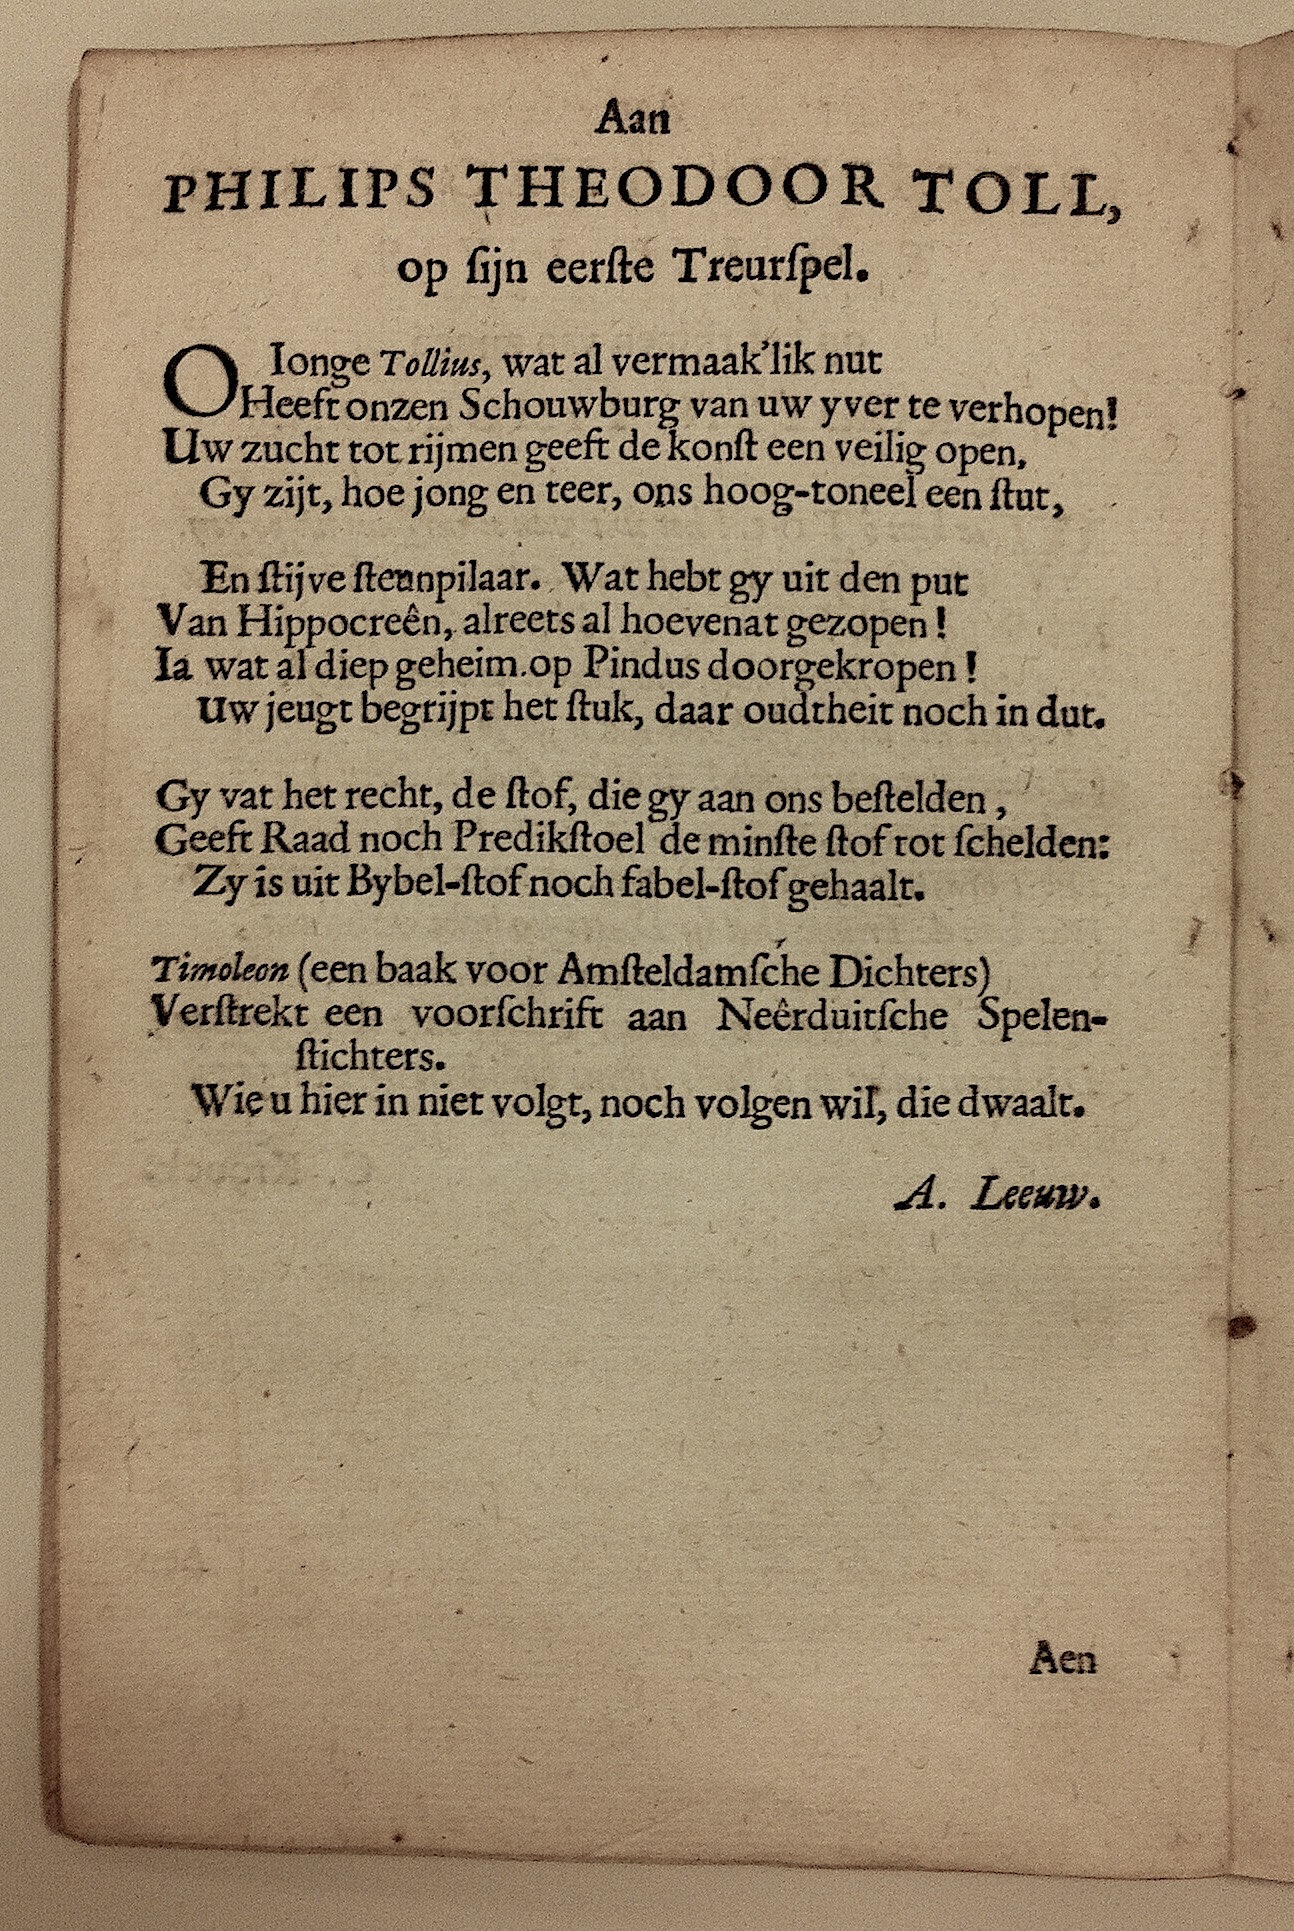 Aan
PHILIPS THEODOOR TOLL,
op ſijn eerſte Treurſpel.
O Ionge Tollius, wat al vermaak’lik nut
Heeft onzen Schouwburg van uw yver te verhopen!
Uw zucht tot rijmen geeft de konſt een veilig open,
Gy zijt, hoe jong en teer, ons hoog-toneel een ſtut,
En ſtijve ſteunpilaar. Wat hebt gy uit den put
Van Hippocreên, alreets al hoevenat gezopen!
Ia wat al diep geheim op Pindus doorgekropen!
Uw jeugt begrijpt het ſtuk, daar oudtheit noch in dut.
Gy vat het recht, de ſtof, die gy aan ons beſtelden,
Geeft Raad noch Predikſtoel de minſte ſtof tot ſchelden:
Zy is uit Bybel-ſtof noch fabel-ſtof gehaalt.
Timoleon (een baak voor Amſteldamſche Dichters)
Verſtrekt een voorſchrift aan Neêrduitſche Spelen-
ſtichters.
Wie u hier in niet volgt, noch volgen wil, die dwaalt.
A. Leeuw.
Aen